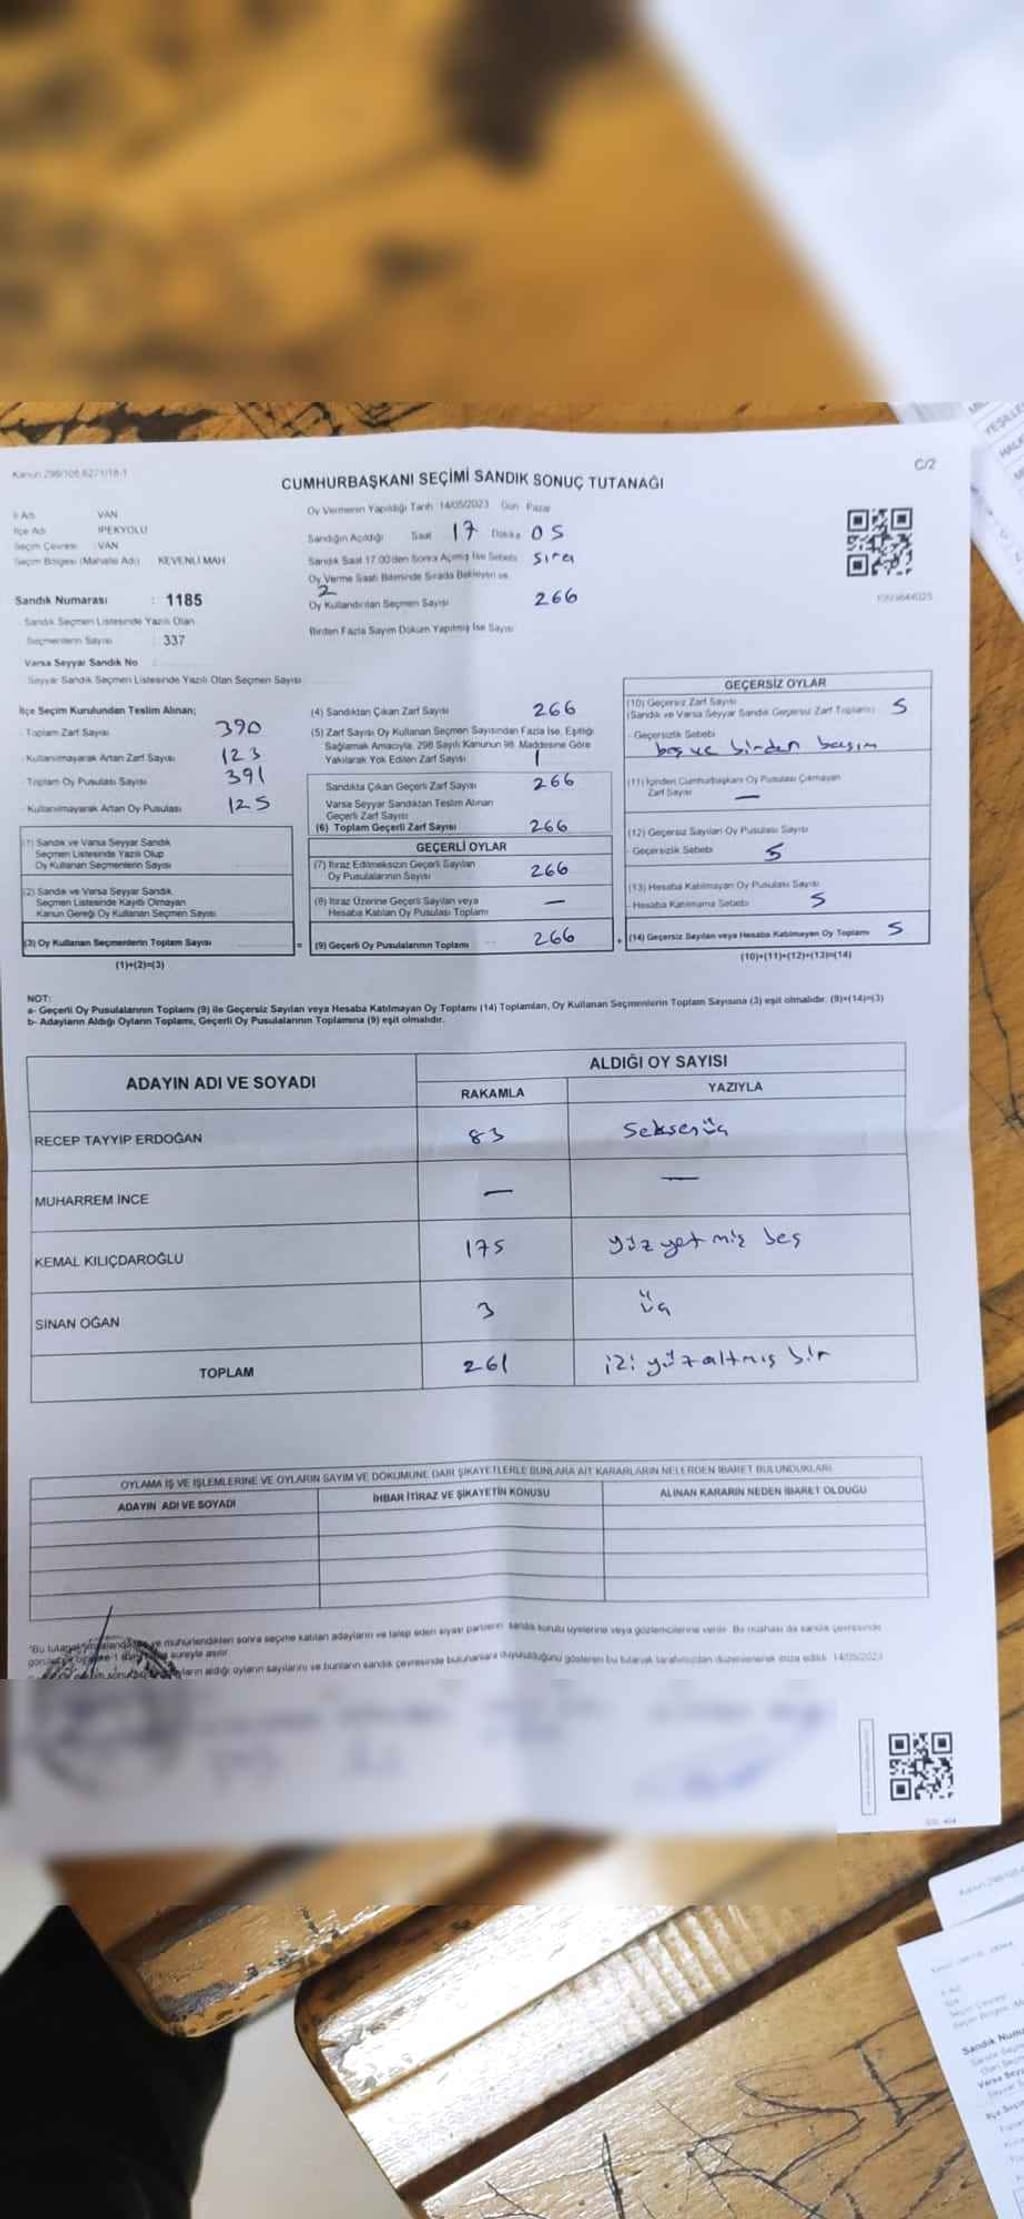 Kanun 298/105,6271/18-1
C/2
CUMHURBAŞKANI SEÇİMİ SANDIK SONUÇ TUTANAĞI
İl Adı : VAN
İlçe Adı : İPEKYOLU
Seçim Çevresi : VAN
Seçim Bölgesi (Mahalle Adı) : KEVENLİ MAH
Sandık Numarası : 1185
Sandık Seçmen Listesinde Yazılı Olan
Seçmenlerin Sayısı : 337
Varsa Seyyar Sandık No :
Seyyar Sandık Seçmen Listesinde Yazılı Olan Seçmen Sayısı
Oy Vermenin Yapıldığı Tarih 14/05/2023 Gün Pazar
Sandığın Açıldığı Saat 17 Dakika 05
Sandık Saat 17.00'den Sonra Açılmış İse Sebebi sıra
Oy Verme Saati Bitiminde Sırada Bekleyen ve
2
Oy Kullandırılan Seçmen Sayısı 266
Birden Fazla Sayım Döküm Yapılmış İse Sayısı
İlçe Seçim Kurulundan Teslim Alınan;
Toplam Zarf Sayısı 390
Kullanılmayarak Artan Zarf Sayısı 123
Toplam Oy Pusulası Sayısı 391
Kullanılmayarak Artan Oy Pusulası 125
(1) Sandık ve Varsa Seyyar Sandık
Seçmen Listesinde Yazılı Olup
Oy Kullanan Seçmenlerin Sayısı
(2) Sandık ve Varsa Seyyar Sandık
Seçmen Listesinde Kayıtlı Olmayan
Kanun Gereği Oy Kullanan Seçmen Sayısı
(3) Oy Kullanan Seçmenlerin Toplam Sayısı
(1)+(2)=(3)
(4) Sandıktan Çıkan Zarf Sayısı 266
(5) Zarf Sayısı Oy Kullanan Seçmen Sayısından Fazla İse, Eşitliği
Sağlamak Amacıyla, 298 Sayılı Kanunun 98. Maddesine Göre
Yakılarak Yok Edilen Zarf Sayısı 1
Sandıkta Çıkan Geçerli Zarf Sayısı 266
Varsa Seyyar Sandıktan Teslim Alınan
Geçerli Zarf Sayısı
(6) Toplam Geçerli Zarf Sayısı 266
GEÇERLİ OYLAR
(7) İtiraz Edilmeksizin Geçerli Sayılan
Oy Pusulalarının Sayısı 266
(8) İtiraz Üzerine Geçerli Sayılan veya
Hesaba Katılan Oy Pusulası Toplamı —
= (9) Geçerli Oy Pusulalarının Toplamı 266
GEÇERSİZ OYLAR
(10) Geçersiz Zarf Sayısı
(Sandık ve Varsa Seyyar Sandık Geçersiz Zarf Toplamı) 5
- Geçersizlik Sebebi
boş ve birden basım
(11) İçinden Cumhurbaşkanı Oy Pusulası Çıkmayan
Zarf Sayısı —
(12) Geçersiz Sayılan Oy Pusulası Sayısı
- Geçersizlik Sebebi 5
(13) Hesaba Katılmayan Oy Pusulası Sayısı
- Hesaba Katılmama Sebebi 5
+ (14) Geçersiz Sayılan veya Hesaba Katılmayan Oy Toplamı 5
(10)+(11)+(12)+(13)=(14)
NOT:
a- Geçerli Oy Pusulalarının Toplamı (9) ile Geçersiz Sayılan veya Hesaba Katılmayan Oy Toplamı (14) Toplamları, Oy Kullanan Seçmenlerin Toplam Sayısına (3) eşit olmalıdır. (9)+(14)=(3)
b- Adayların Aldığı Oyların Toplamı, Geçerli Oy Pusulalarının Toplamına (9) eşit olmalıdır.
ADAYIN ADI VE SOYADI ALDIĞI OY SAYISI
RAKAMLA YAZIYLA
RECEP TAYYİP ERDOĞAN 83 Seksenüç
MUHARREM İNCE — —
KEMAL KILIÇDAROĞLU 175 yüz yetmiş beş
SİNAN OĞAN 3 üç
TOPLAM 261 iki yüz altmış bir
OYLAMA İŞ VE İŞLEMLERİNE VE OYLARIN SAYIM VE DÖKÜMÜNE DAİR ŞİKAYETLERLE BUNLARA AİT KARARLARIN NELERDEN İBARET BULUNDUKLARI
ADAYIN ADI VE SOYADI İHBAR İTİRAZ VE ŞİKAYETİN KONUSU ALINAN KARARIN NEDEN İBARET OLDUĞU
mühürlendikten sonra seçime katılan adayların ve talep eden siyasi partilerin sandık kurulu üyelerine veya gözlemcilerine verilir. Bu nüshası da sandık çevresinde
suretiyle asılır.
aldığı oyların sayılarını ve bunların sandık çevresinde bulunanlara duyurulduğunu gösteren bu tutanak tarafımızdan düzenlenerek imza edildi. 14/05/2023
Sandık